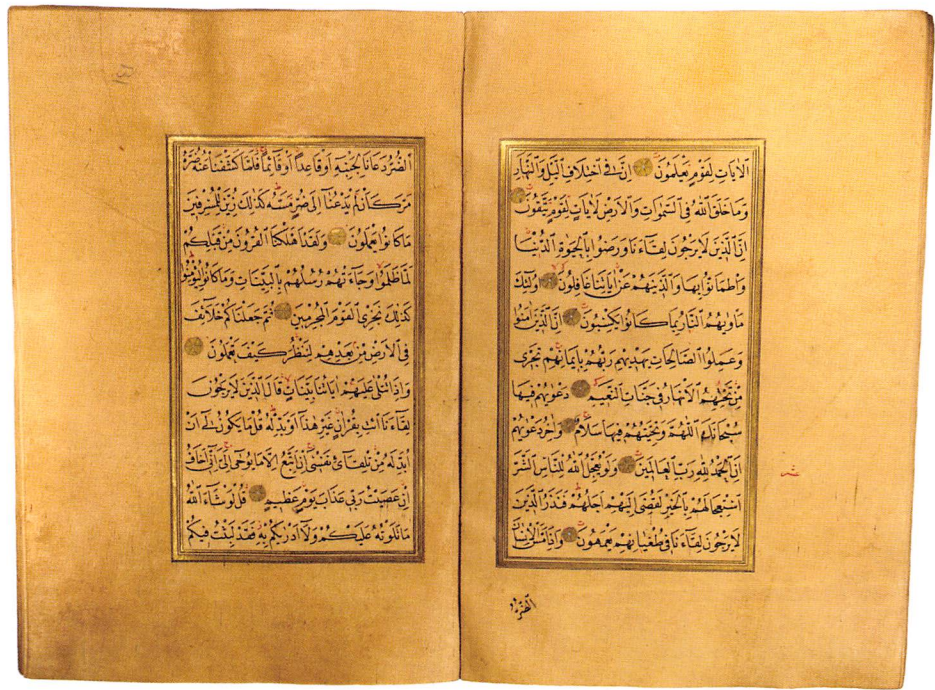 الْاٰيَاتِ لِقَوْمٍ يَعْلَمُونَ اِنَّ فِي اخْتِلَافِ الَّيْلِ وَالنَّهَارِ
وَمَا خَلَقَ اللّٰهُ فِي السَّمٰوَاتِ وَالْاَرْضِ لَاٰيَاتٍ لِقَوْمٍ يَتَّقُونَ
اِنَّ الَّذِينَ لَا يَرْجُونَ لِقَاءَنَا وَرَضُوا بِالْحَيٰوةِ الدُّنْيَا
وَاطْمَاَنُّوا بِهَا وَالَّذِينَ هُمْ عَنْ اٰيَاتِنَا غَافِلُونَ اُولٰئِكَ
مَاْوٰيهُمُ النَّارُ بِمَا كَانُوا يَكْسِبُونَ اِنَّ الَّذِينَ اٰمَنُوا
وَعَمِلُوا الصَّالِحَاتِ يَهْدِيهِمْ رَبُّهُمْ بِاِيمَانِهِمْ تَجْرِي
مِنْ تَحْتِهِمُ الْاَنْهَارُ فِي جَنَّاتِ النَّعِيمِ دَعْوٰيهُمْ فِيهَا
سُبْحَانَكَ اللّٰهُمَّ وَتَحِيَّتُهُمْ فِيهَا سَلَامٌ وَاٰخِرُ دَعْوٰيهُمْ
اَنِ الْحَمْدُ لِلّٰهِ رَبِّ الْعَالَمِينَ وَلَوْ يُعَجِّلُ اللّٰهُ لِلنَّاسِ الشَّرَّ
اسْتِعْجَالَهُمْ بِالْخَيْرِ لَقُضِيَ اِلَيْهِمْ اَجَلُهُمْ فَنَذَرُ الَّذِينَ
لَا يَرْجُونَ لِقَاءَنَا فِي طُغْيَانِهِمْ يَعْمَهُونَ وَاِذَا مَسَّ الْاِنْسَانَ
الضُّرُّ
الضُّرُّ دَعَانَا لِجَنْبِهِ اَوْ قَاعِدًا اَوْ قَائِمًا فَلَمَّا كَشَفْنَا عَنْهُ ضُرَّهُ
مَرَّ كَاَنْ لَمْ يَدْعُنَا اِلٰى ضُرٍّ مَسَّهُ كَذٰلِكَ زُيِّنَ لِلْمُسْرِفِينَ
مَا كَانُوا يَعْمَلُونَ وَلَقَدْ اَهْلَكْنَا الْقُرُونَ مِنْ قَبْلِكُمْ
لَمَّا ظَلَمُوا وَجَاءَتْهُمْ رُسُلُهُمْ بِالْبَيِّنَاتِ وَمَا كَانُوا لِيُؤْمِنُوا
كَذٰلِكَ نَجْزِي الْقَوْمَ الْمُجْرِمِينَ ثُمَّ جَعَلْنَاكُمْ خَلَائِفَ
فِي الْاَرْضِ مِنْ بَعْدِهِمْ لِنَنْظُرَ كَيْفَ تَعْمَلُونَ
وَاِذَا تُتْلٰى عَلَيْهِمْ اٰيَاتُنَا بَيِّنَاتٍ قَالَ الَّذِينَ لَا يَرْجُونَ
لِقَاءَنَا ائْتِ بِقُرْاٰنٍ غَيْرِ هٰذَا اَوْ بَدِّلْهُ قُلْ مَا يَكُونُ لِي اَنْ
اُبَدِّلَهُ مِنْ تِلْقَائِ نَفْسِي اِنْ اَتَّبِعُ اِلَّا مَا يُوحٰى اِلَيَّ اِنِّي اَخَافُ
اِنْ عَصَيْتُ رَبِّي عَذَابَ يَوْمٍ عَظِيمٍ قُلْ لَوْ شَاءَ اللّٰهُ
مَا تَلَوْتُهُ عَلَيْكُمْ وَلَا اَدْرٰيكُمْ بِهِ فَقَدْ لَبِثْتُ فِيكُمْ